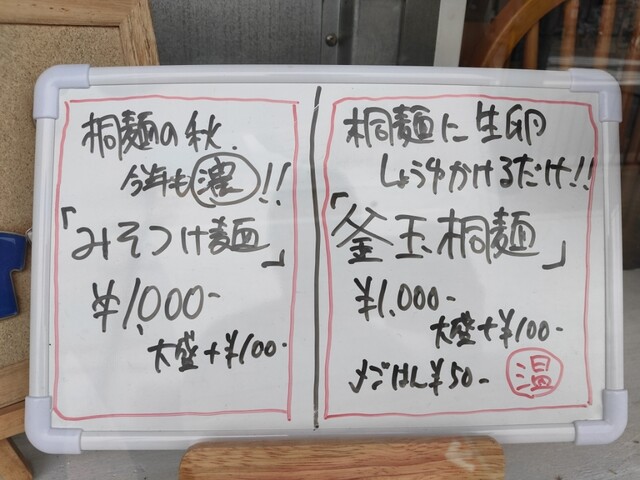 桐麺の秋.
今年も濃!!
「みそつけ麺」
¥1,000-
大盛+¥100-
桐麺に生卵
しょうゆかけるだけ!!
「釜玉桐麺」
¥1,000-
大盛+¥100-
〆ごはん¥50-
温